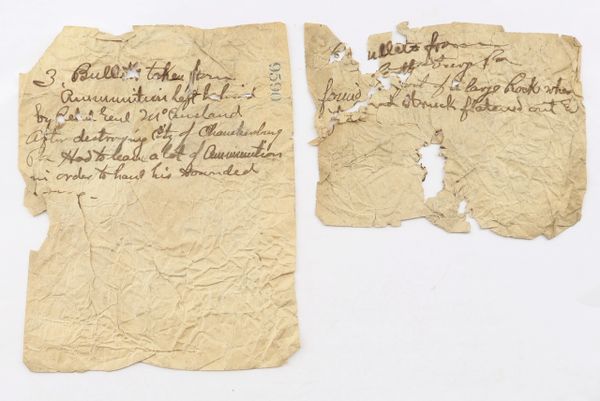 3 Bullets taken from
Ammunition left behind
by Rebel Genl McCausland
After destroying City of Chambersburg
Pa Had to leave a lot of Ammunition
in order to haul his Wounded
9590
Bullets from
found out of a large Rock when
struck flatened out